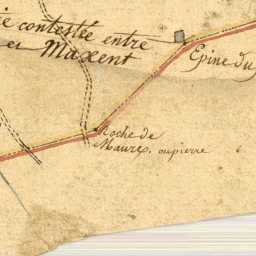 ie contestée entre
et Maxent
Epine du
Roche de
Maurex, ou pierre